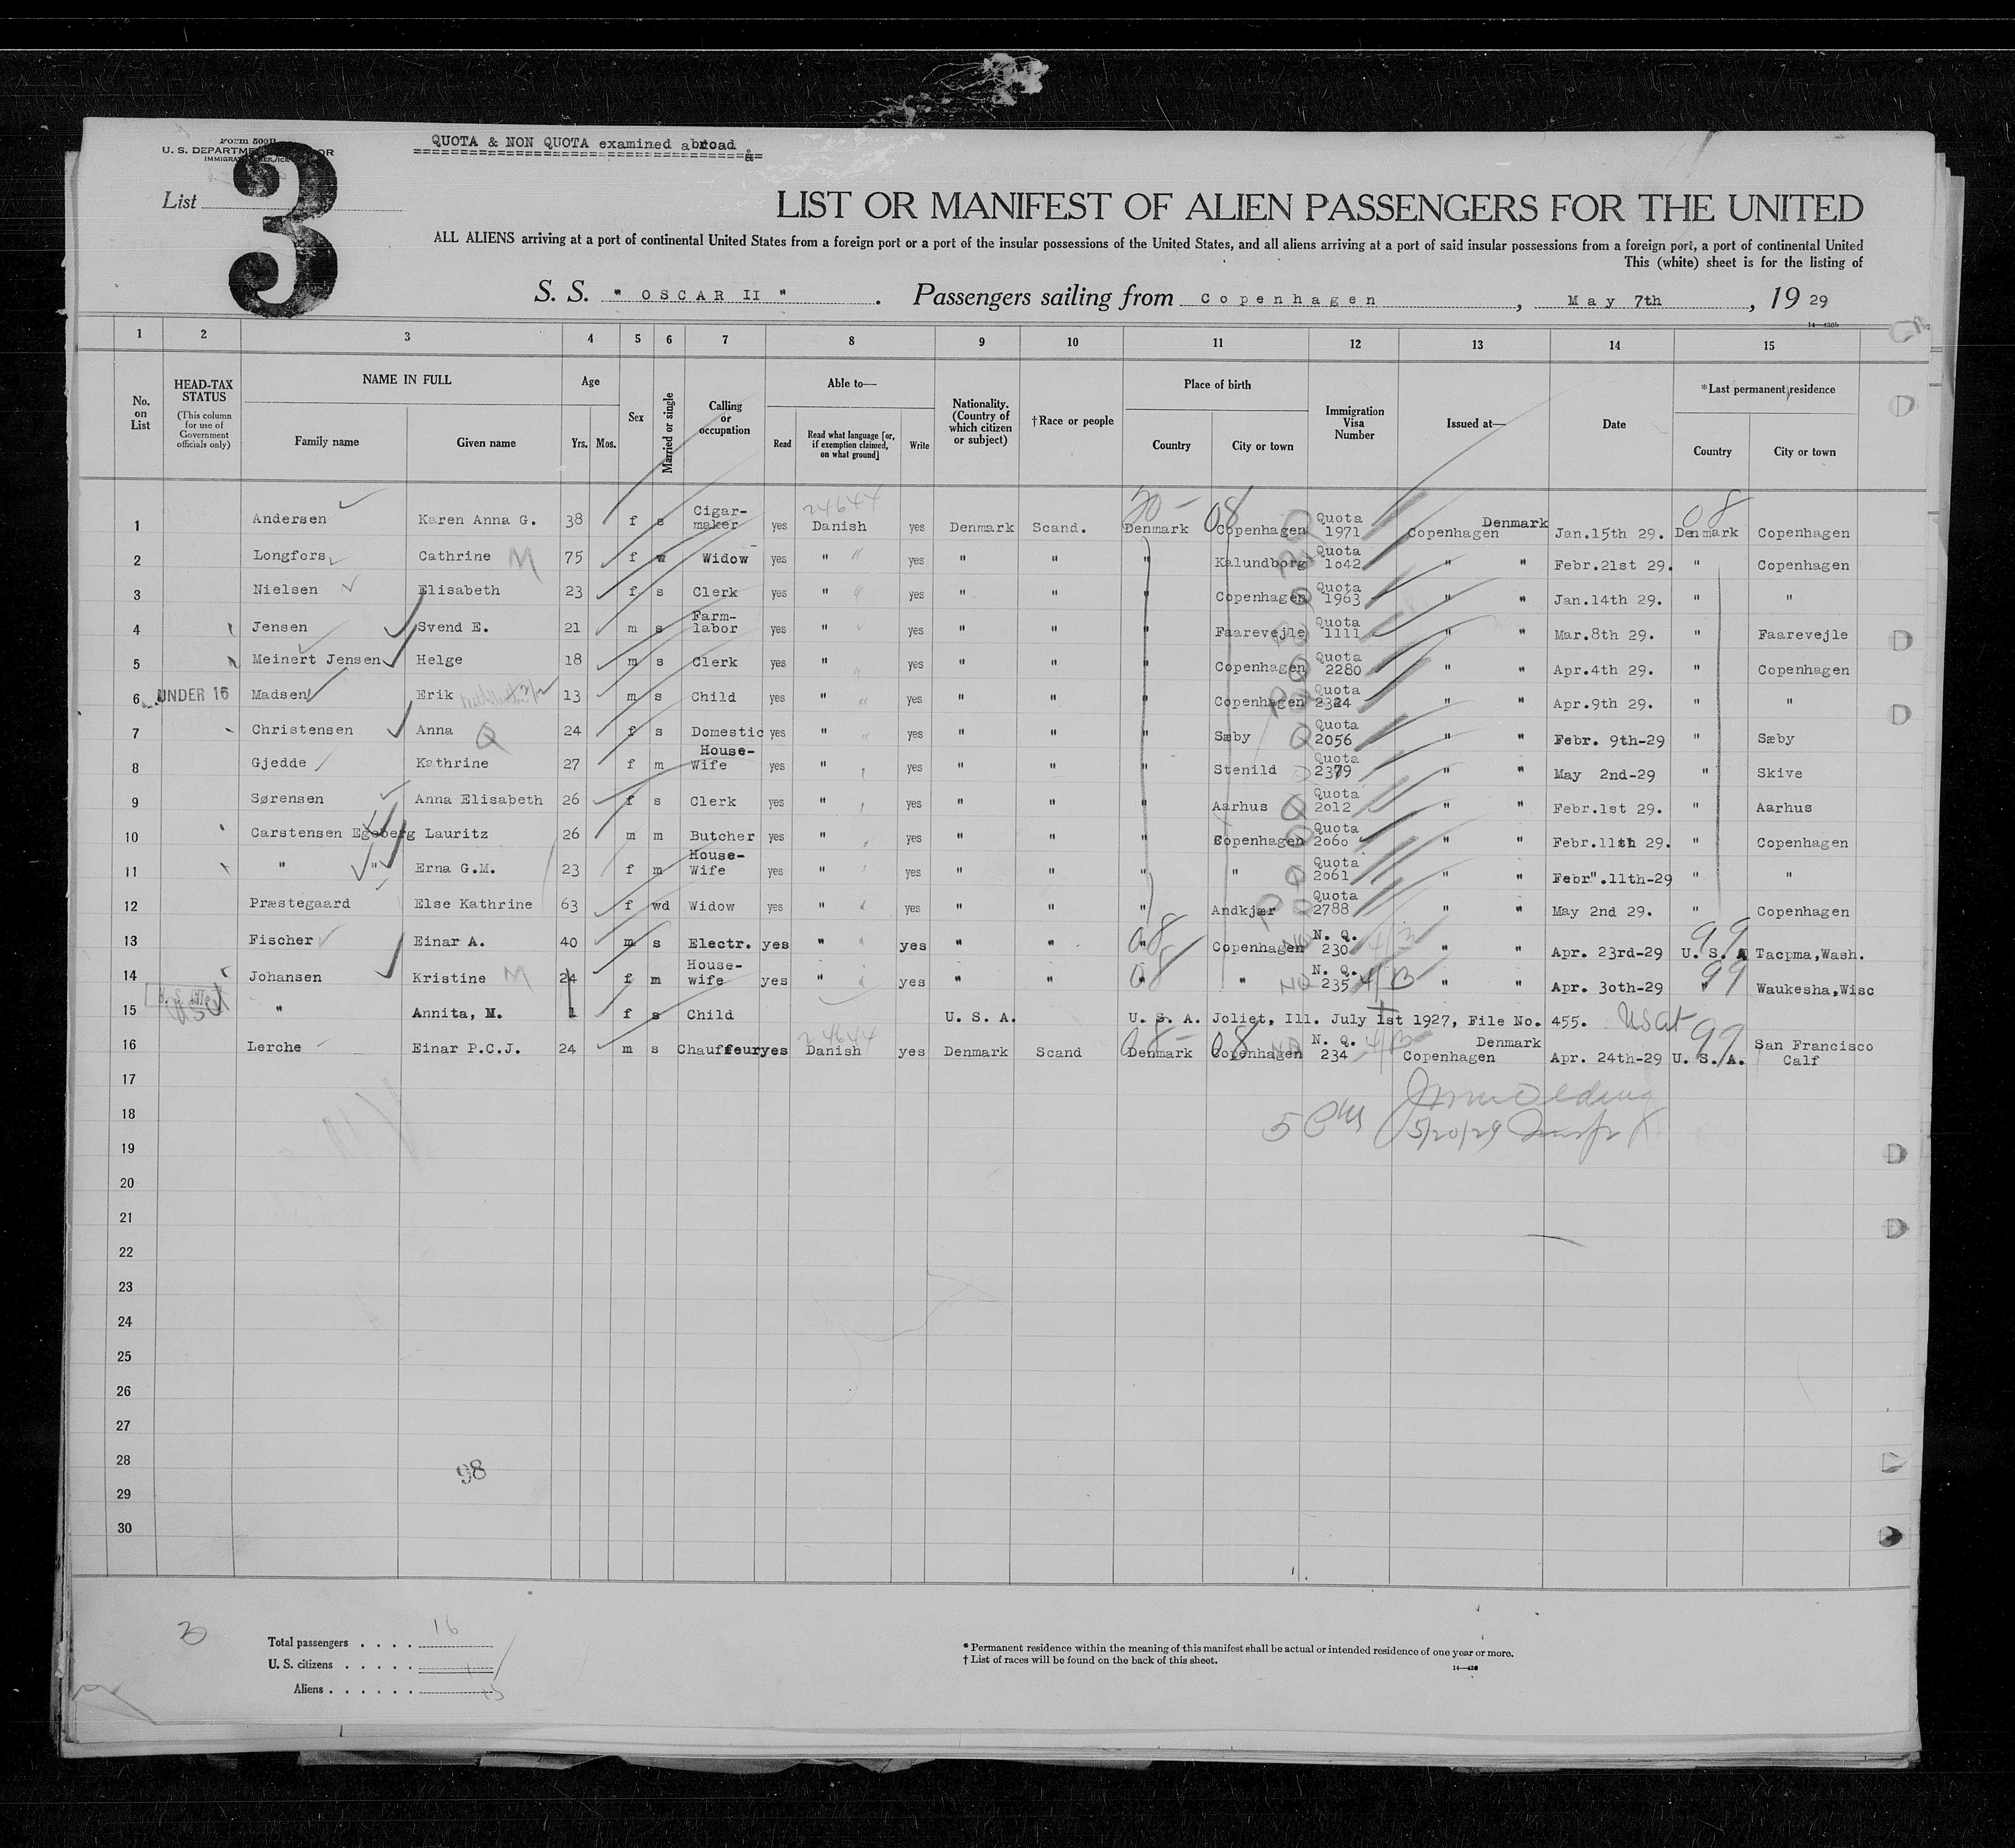 Form 500B
U. S. DEPARTMENT OF LABOR
IMMIGRATION SERVICE
QUOTA & NON QUOTA examined abroad
List 3
LIST OR MANIFEST OF ALIEN PASSENGERS FOR THE UNITED
ALL ALIENS arriving at a port of continental United States from a foreign port or a port of the insular possessions of the United States, and all aliens arriving at a port of said insular possessions from a foreign port, a port of continental United
This (white) sheet is for the listing of
S. S. " OSCAR II " . Passengers sailing from Copenhagen , May 7th , 19 29
14—430b
1 2 3 4 5 6 7 8 9 10 11 12 13 14 15
No. on List
HEAD-TAX STATUS (This column for use of Government officials only)
NAME IN FULL
Family name Given name
Age
Yrs. Mos.
Sex
Married or single
Calling or occupation
Able to—
Read Read what language [or, if exemption claimed, on what ground] Write
Nationality. (Country of which citizen or subject)
†Race or people
Place of birth
Country City or town
Immigration Visa Number
Issued at—
Date
*Last permanent residence
Country City or town
1 Andersen Karen Anna G. 38 f s Cigar-maker yes 24644 Danish yes Denmark Scand. Denmark 08 Copenhagen Quota 1971 Copenhagen Denmark Jan.15th 29. 08 Denmark Copenhagen
2 Longfors Cathrine M 75 f w Widow yes " yes " " " Kalundborg Quota 1o42 " " Febr.21st 29. " Copenhagen
3 Nielsen Elisabeth 23 f s Clerk yes " yes " " " Copenhagen Quota 1963 " " Jan.14th 29. " "
4 Jensen Svend E. 21 m s Farm-labor yes " yes " " " Faarevejle Quota 1111 " " Mar.8th 29. " Faarevejle
5 Meinert Jensen Helge 18 m s Clerk yes " yes " " " Copenhagen Quota 2280 " " Apr.4th 29. " Copenhagen
6 UNDER 16 Madsen Erik 13 m s Child yes " yes " " " Copenhagen Quota " " Apr.9th 29. " "
7 Christensen Anna Q 24 f s Domestic yes " yes " " " Sæby Q Quota 2056 " " Febr. 9th-29 " Sæby
8 Gjedde Kathrine 27 f m House-Wife yes " yes " " " Stenild Quota 2379 " " May 2nd-29 " Skive
9 Sørensen Anna Elisabeth 26 f s Clerk yes " yes " " " Aarhus Q Quota 2o12 " " Febr.1st 29. " Aarhus
10 Carstensen Egeberg Lauritz 26 m m Butcher yes " yes " " " Copenhagen Quota 2o6o " " Febr.11th 29. " Copenhagen
11 " " Erna G.M. 23 f m House-Wife yes " yes " " " " Quota 2o61 " " Febr".11th-29 " "
12 Præstegaard Else Kathrine 63 f wd Widow yes " yes " " " Andkjær Quota 2788 " " May 2nd 29. " Copenhagen
13 Fischer Einar A. 40 m s Electr. yes " yes " " 08 " Copenhagen NQ N. Q. 230 4/B " " Apr. 23rd-29 99 U. S. A Tacpma,Wash.
14 Johansen Kristine M 24 f m House-wife yes " yes " " 08 " " NQ N. Q. 235 4/B " " Apr. 3oth-29 99 " Waukesha,Wisc
15 " Annita, M. 1 f s Child U. S. A. U. S. A. Joliet, Ill. July 1st 1927, File No. 455. US cit
16 Lerche Einar P.C.J. 24 m s Chauffeur yes 24644 Danish yes Denmark Scand 08 Denmark 08 Copenhagen NQ N. Q. 234 4/B Copenhagen Denmark Apr. 24th-29 99 U. S. A. San Francisco Calf
17
18
5/20/29
19
20
21
22
23
24
25
26
27
28
98
29
30
Total passengers . . . . 16
U. S. citizens . . . . . 1
Aliens . . . . . . 15
* Permanent residence within the meaning of this manifest shall be actual or intended residence of one year or more.
† List of races will be found on the back of this sheet.
14—430